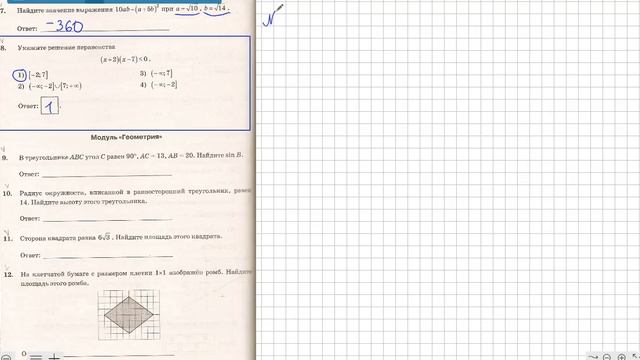 7. Найдите значение выражения 10ab−(a+5b)² при a=√10, b=√14.
Ответ: −360
8. Укажите решение неравенства
(x+2)(x−7)≤0.
1) [−2; 7]
3) (−∞; 7]
2) (−∞; −2]∪[7; +∞)
4) (−∞; −2]
Ответ: 1.
Модуль «Геометрия»
9. В треугольнике ABC угол C равен 90°, AC = 13, AB = 20. Найдите sin B.
Ответ:
10. Радиус окружности, вписанной в равносторонний треугольник, равен
14. Найдите высоту этого треугольника.
Ответ:
11. Сторона квадрата равна 6√3. Найдите площадь этого квадрата.
Ответ:
12. На клетчатой бумаге с размером клетки 1×1 изображён ромб. Найдите
площадь этого ромба.
О
N